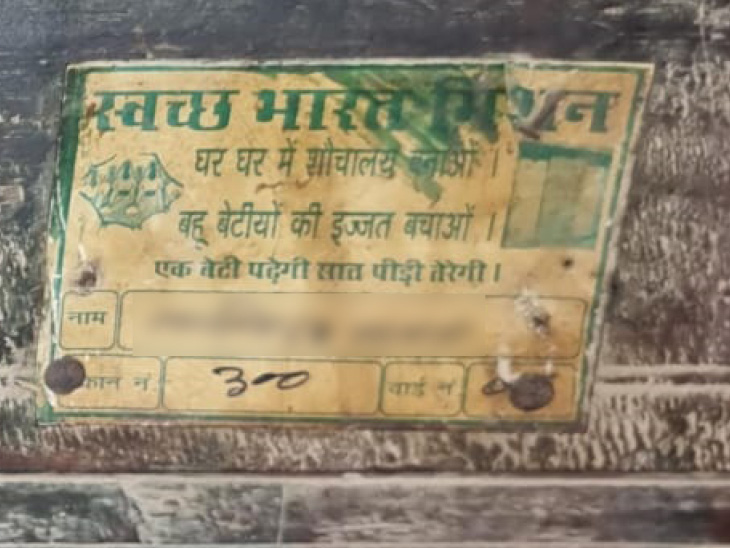 स्वच्छ भारत मिशन
घर घर में शौचालय बनाओं ।
बहू बेटीयों की इज्जत बचाओं ।
एक बेटी पढ़ेगी सात पीढ़ी तेरेगी ।
नाम
कान न. 300
वार्ड न.